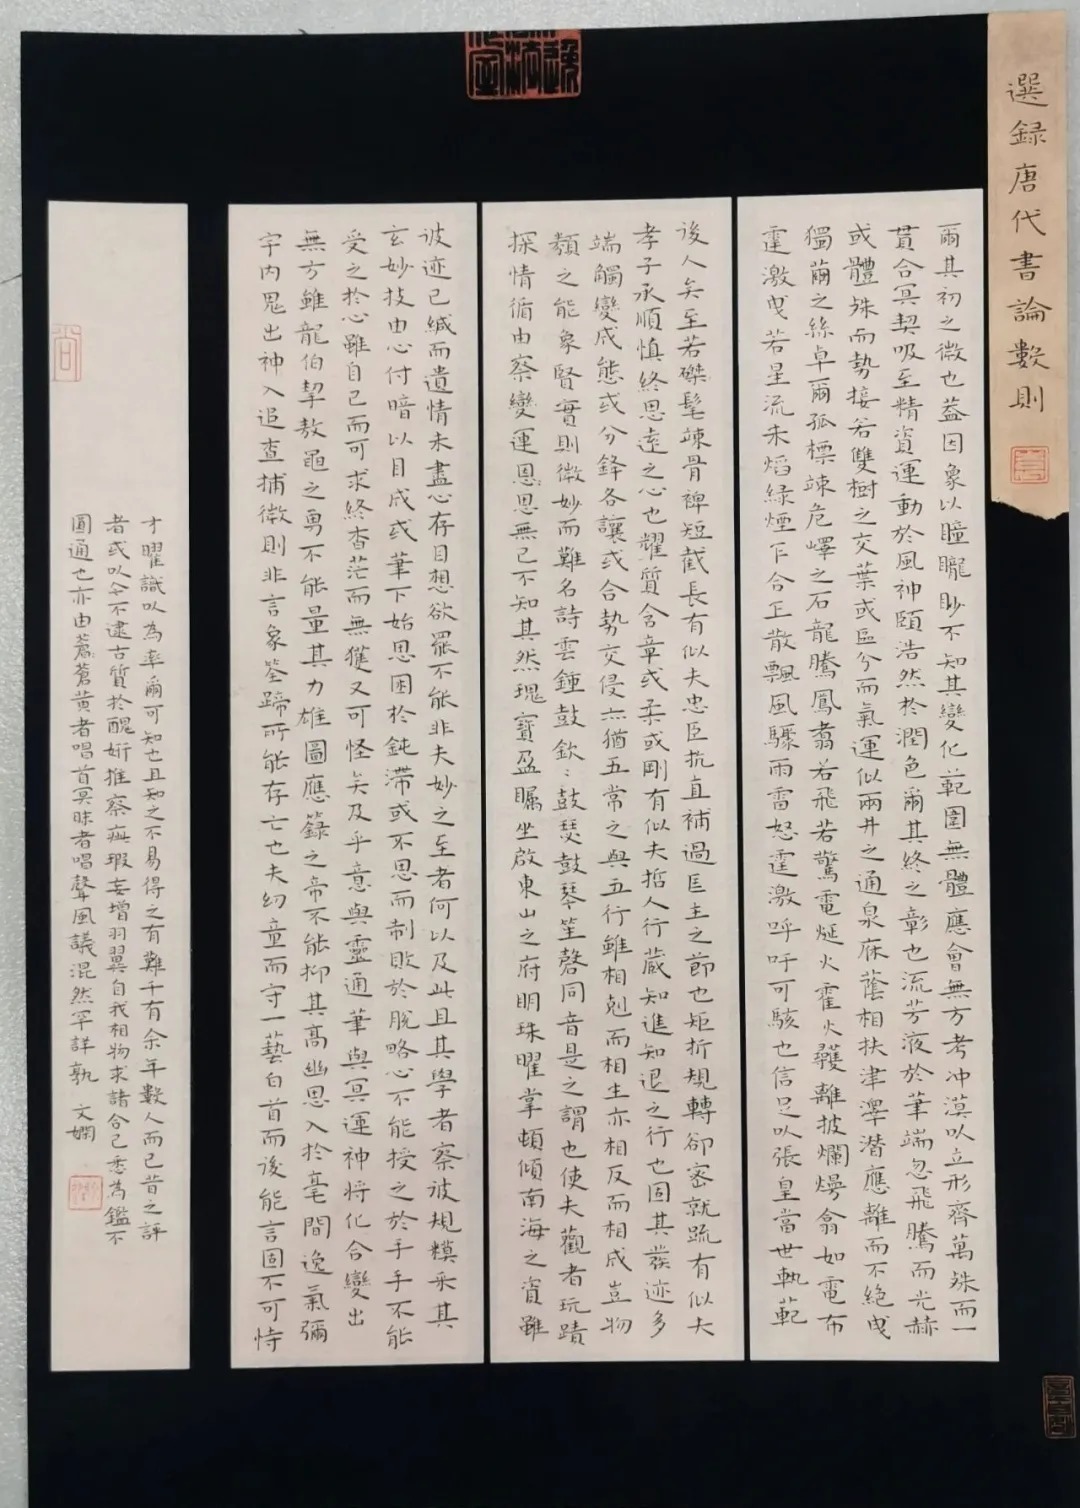 選録唐代書論數則
爾其初之微也蓋因象以瞳矓眇不知其變化範圍無體應會無方考冲漠以立形齊萬殊而一
貫合冥契吸至精資運動於風神頤浩然於潤色爾其終之彰也流芳液於筆端忽飛騰而光赫
或體殊而勢接若雙樹之交葉或區分而氣運似兩井之通泉庥蔭相扶津澤潜應離而不絶曳
獨繭之絲卓爾孤標竦危嶧之石龍騰鳳翥若飛若驚電烻火霍火爗離披爛熳翕如電布
霆激曳若星流朱熖緑煙乍合乍散飄風驟雨雷怒霆激呼吁可駭也信足以張皇當世軌範
後人矣至若磔髦竦骨裨短截長有似夫忠臣抗直補過匡主之節也矩折規轉卻密就疏有似夫
孝子承順慎終思遠之心也耀質含章或柔或剛有似夫哲人行藏知進知退之行也固其發迹多
端觸變成態或分鋒各讓或合勢交侵亦猶五常之與五行雖相剋而相生亦相反而相成豈物
類之能象賢實則微妙而難名詩雲鍾鼓欽:鼓瑟鼓琴笙磬同音是之謂也使夫觀者玩蹟
探情循由察變運思思無已不知其然瑰寶盈矚坐啟東山之府明珠曜掌頓傾南海之資雖
彼迹已緘而遺情未盡心存目想欲罷不能非夫妙之至者何以及此且其學者察彼規模采其
玄妙技由心付暗以目成或筆下始思困於鈍滯或不思而制敗於脱略心不能授之於手手不能
受之於心雖自己而可求終杳茫而無獲又可怪矣及乎意與靈通筆與冥運神将化合變出
無方雖龍伯挈鼇之勇不能量其力雄圖應籙之帝不能抑其高幽思入於毫間逸氣彌
宇内鬼出神入追查捕微則非言象筌蹄所能存亡也夫幼童而守一藝白首而後能言固不可恃
才曜識以為率爾可知也且知之不易得之有難千有余年數人而已昔之評
者或以今不逮古質於醜妍推察疵瑕妄增羽翼自我相物求諸合己悉為鑑不
圓通也亦由蒼黄者唱首冥昧者唱聲風議混然罕詳孰 文嫻